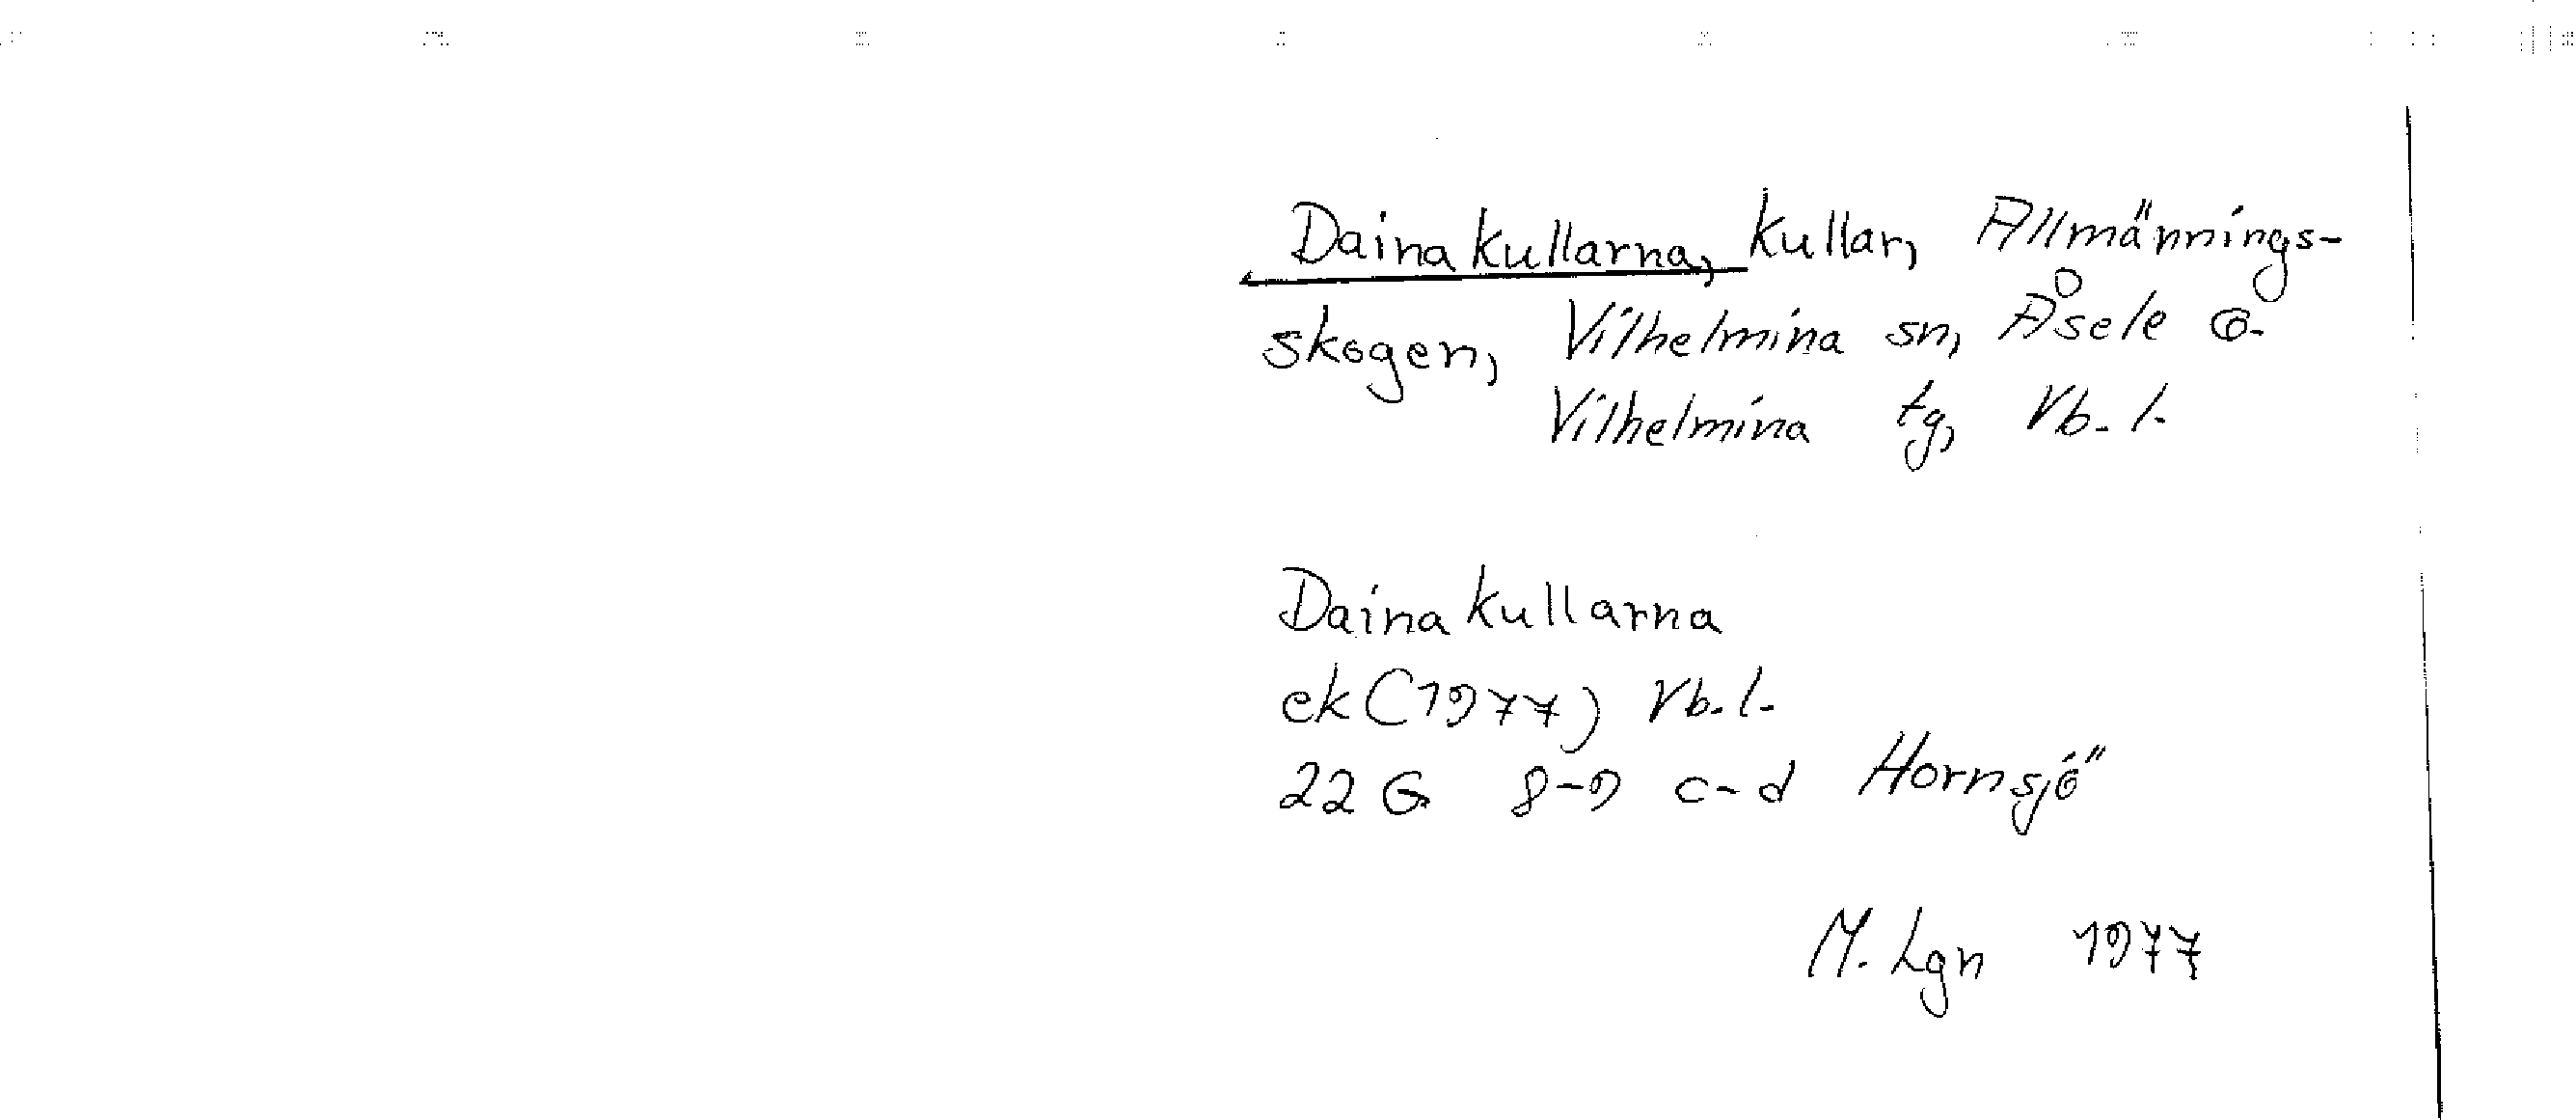 Dainakullarna, kullar, Allmännings-
skogen, Vilhelmina sn, Åsele
Vilhelmina tg, Vb. l.
Dainakullarna
ek (1977) Vb. l.
22 G 8-9 c-d Hornsjö
M. Lgn 1977